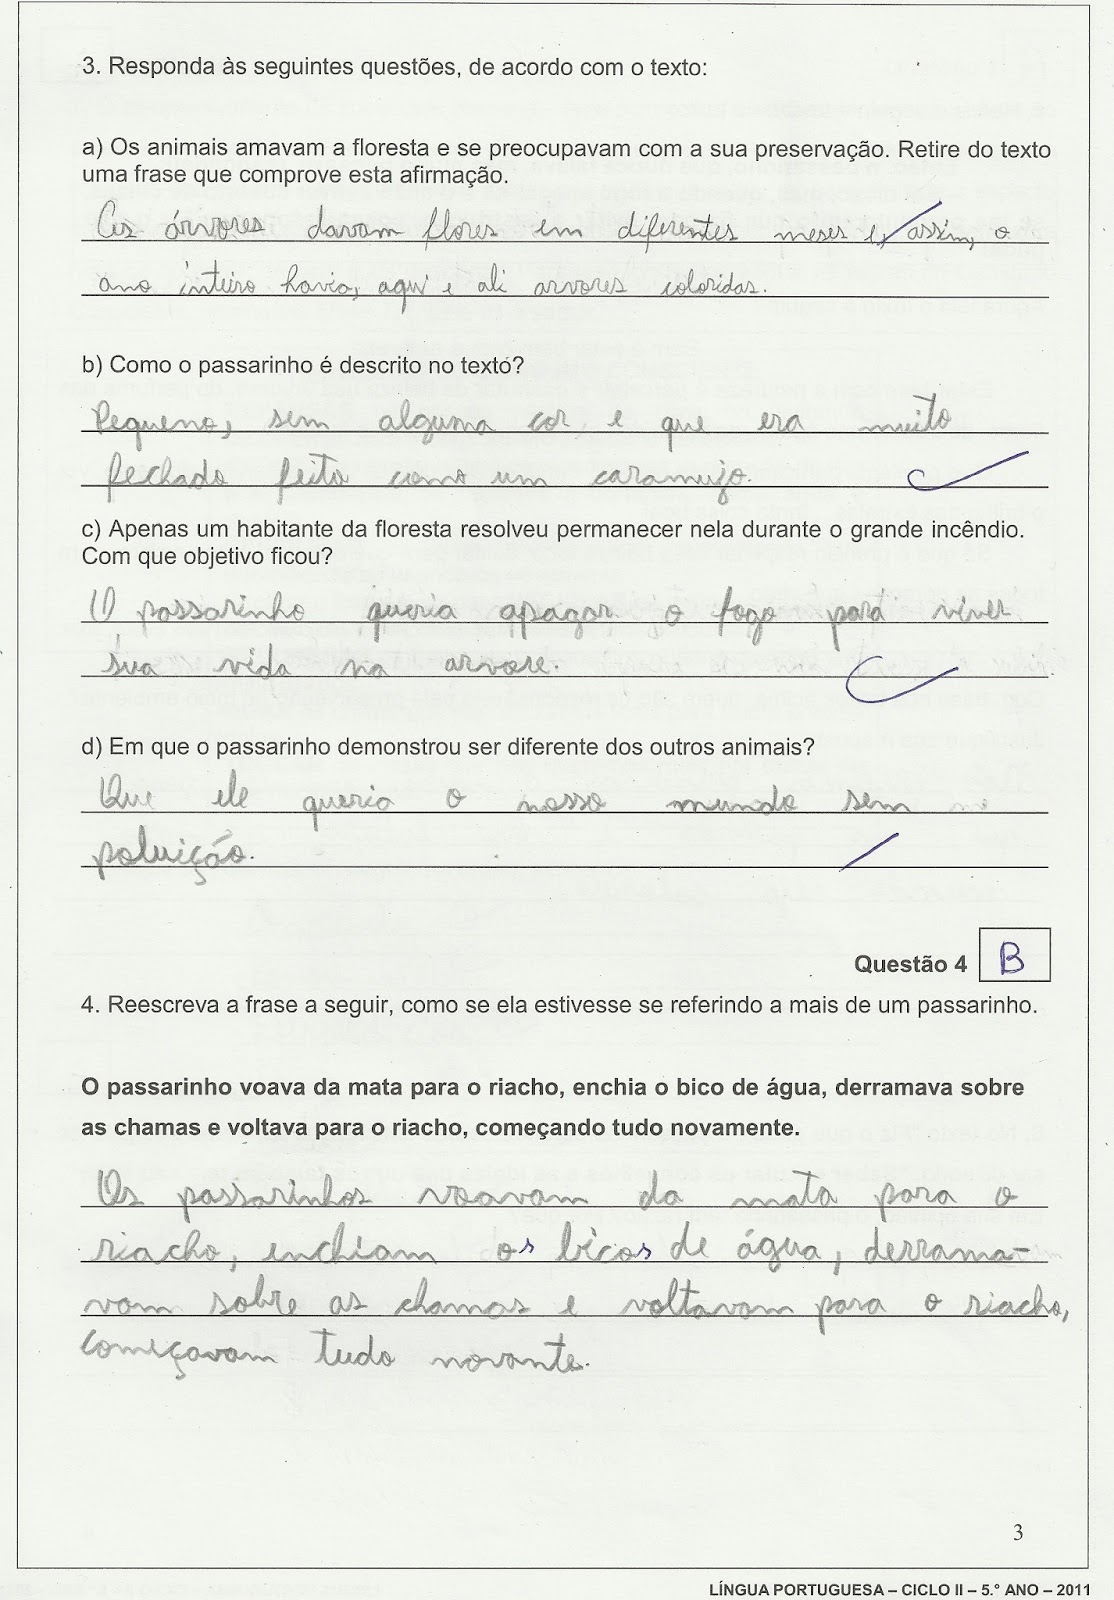 3. Responda às seguintes questões, de acordo com o texto:
a) Os animais amavam a floresta e se preocupavam com a sua preservação. Retire do texto
uma frase que comprove esta afirmação.
As árvores davam flores em diferentes meses e, assim, o
ano inteiro havia, aqui e ali arvores coloridas.
b) Como o passarinho é descrito no texto?
Pequeno, sem alguma cor e que era muito
fechado feito como um caramujo.
c) Apenas um habitante da floresta resolveu permanecer nela durante o grande incêndio.
Com que objetivo ficou?
O passarinho queria apagar o fogo para viver
sua vida na arvore.
d) Em que o passarinho demonstrou ser diferente dos outros animais?
Que ele queria o nosso mundo sem
poluição.
Questão 4 B
4. Reescreva a frase a seguir, como se ela estivesse se referindo a mais de um passarinho.
O passarinho voava da mata para o riacho, enchia o bico de água, derramava sobre
as chamas e voltava para o riacho, começando tudo novamente.
Os passarinhos voavam da mata para o
riacho, enchiam os bicos de água, derrama-
vam sobre as chamas e voltavam para o riacho,
começavam tudo novante.
3
LÍNGUA PORTUGUESA – CICLO II – 5.° ANO – 2011